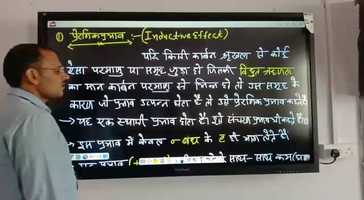 ① प्रेरणिक प्रभाव :- (Inductive Effect)
यदि किसी कार्बन श्रृंखला से कोई
ऐसा परमाणु या समूह जुड़ा हो जिसकी विद्युत ऋणता
का मान कार्बन परमाणु से भिन्न हो तो उस समूह के
कारण जो प्रभाव उत्पन्न होता है उसे प्रेरणिक प्रभाव कहते हैं
→ यह एक स्थायी प्रभाव होता है। इसे संचरण प्रभाव भी कहते हैं
→ इस प्रभाव में केवल σ-बंध के e ही भाग लेते हैं
प्रभाव साथ-साथ कम